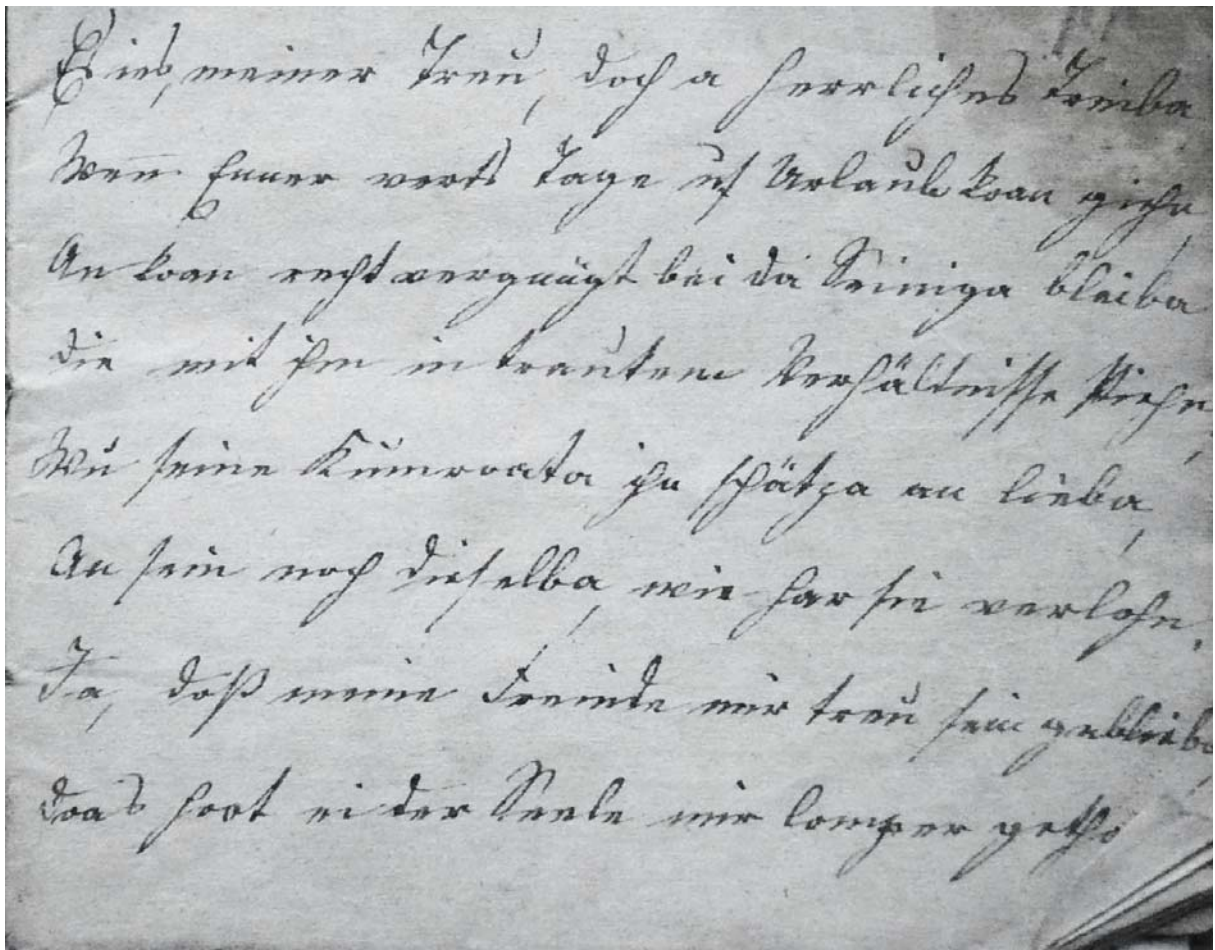 Es ies, meiner Treu, doch a herrliches Treiba
Wenn Enner verts Tage uf Urlaub koan giehn,
An koan recht vergnügt bei da Seiniga bleiba
die mit ihm in trautem Verhältnisse stiehn,
Wu seine Kumroata ihn schätza an lieba,
An sein noch dieselba, wie har sie verlohn.
Ja, doß meine Freinde mir treu sein geblieba
doas hoot ei der Seele mir lomper getho